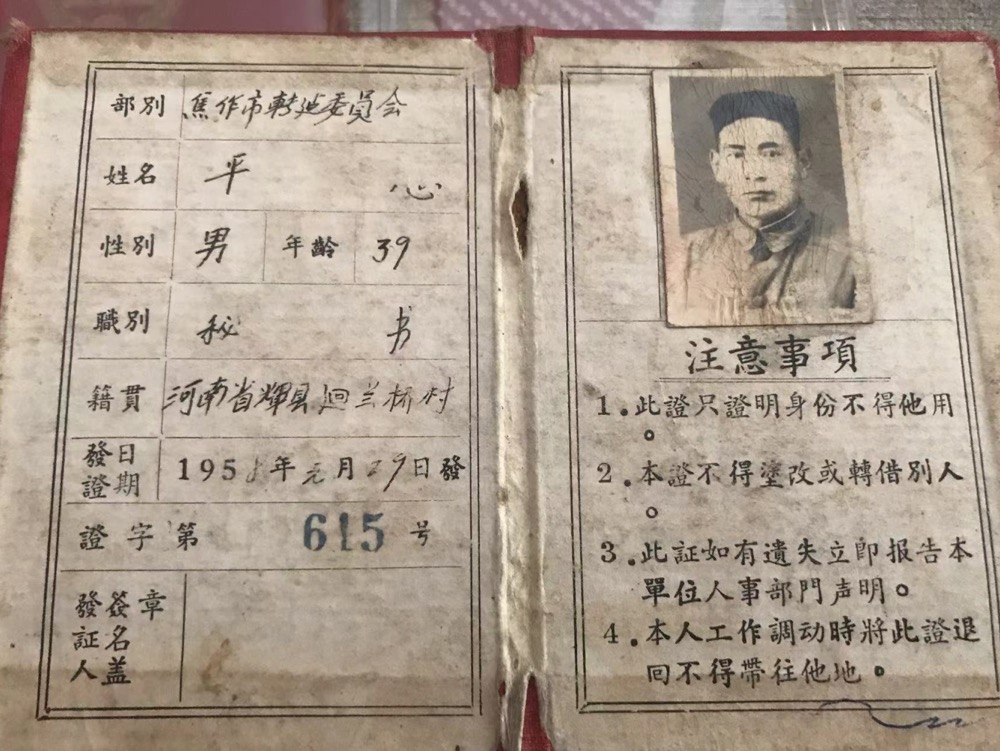 部別 焦作市轉建委員会
姓名 平 心
性別 男 年齡 39
職別 秘 书
籍貫 河南省輝县迴兰桥村
發證日期 1958年元月29日發
證字第 615 号
發証人簽名盖章
注意事項
1.此證只證明身份不得他用
。
2.本證不得塗改或轉借別人
。
3.此証如有遺失立即报告本
單位人事部門声明。
4.本人工作調动時將此證退
回不得帶往他地。